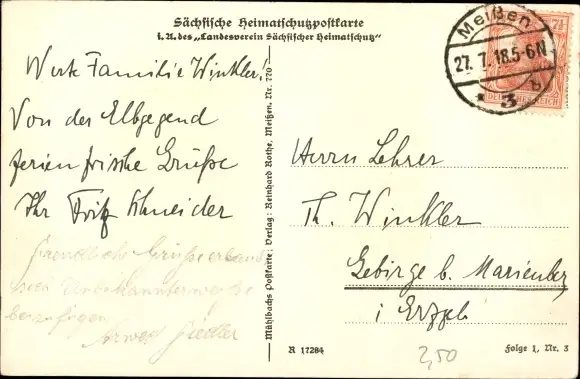 Sächsische Heimatschutzpostkarte
i. A. des „Landesverein Sächsischer Heimatschutz“
Werte Familie Winkler!
Von der Elbgegend
ferienfrische Grüße
Ihr Fritz Schneider
Freundliche Grüße erlaubt
sich Unbekannterweise
beizufügen
Fiedler
Mühlbachs Postkarte: Verlag: Reinhard Rothe, Meißen. Nr. 770
Meißen
27. 7. 18. 5-6N
b
* 3
7½
DEUTSCHES REICH
Herrn Lehrer
Th. Winkler
Gebirge b. Marienberg
i Erzgeb
R 17284
2,50
Folge 1, Nr. 3